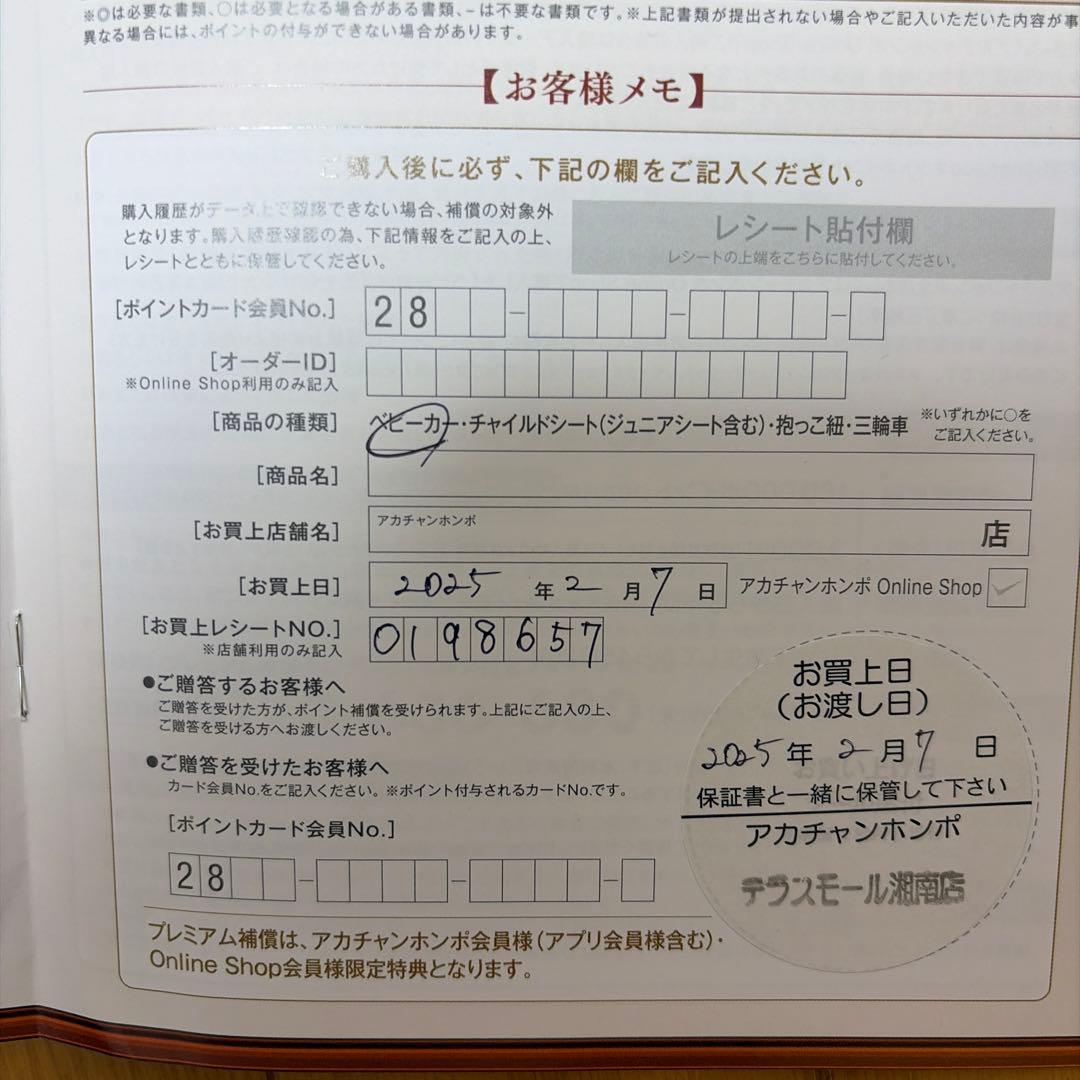 ※◎は必要な書類、○は必要となる場合がある書類、−は不要な書類です。※上記書類が提出されない場合やご記入いただいた内容が事
異なる場合には、ポイントの付与ができない場合があります。
【お客様メモ】
ご購入後に必ず、下記の欄をご記入ください。
購入履歴がデータ上で確認できない場合、補償の対象外
となります。購入履歴確認の為、下記情報をご記入の上、
レシートとともに保管してください。
レシート貼付欄
レシートの上端をこちらに貼付してください。
[ポイントカード会員No.] 28
[オーダーID]
※Online Shop利用のみ記入
[商品の種類] ベビーカー・チャイルドシート(ジュニアシート含む)・抱っこ紐・三輪車 ※いずれかに○を
ご記入ください。
[商品名]
[お買上店舗名] アカチャンホンポ 店
[お買上日] 2025 年 2 月 7 日 アカチャンホンポ Online Shop
[お買上レシートNO.] 0198657
※店舗利用のみ記入
●ご贈答するお客様へ
ご贈答を受けた方が、ポイント補償を受けられます。上記にご記入の上、
ご贈答を受ける方へお渡しください。
●ご贈答を受けたお客様へ
カード会員No.をご記入ください。※ポイント付与されるカードNo.です。
[ポイントカード会員No.]
28
お買上日
(お渡し日)
2025 年 2 月 7 日
保証書と一緒に保管して下さい
アカチャンホンポ
テラスモール湘南店
プレミアム補償は、アカチャンホンポ会員様(アプリ会員様含む)・
Online Shop会員様限定特典となります。